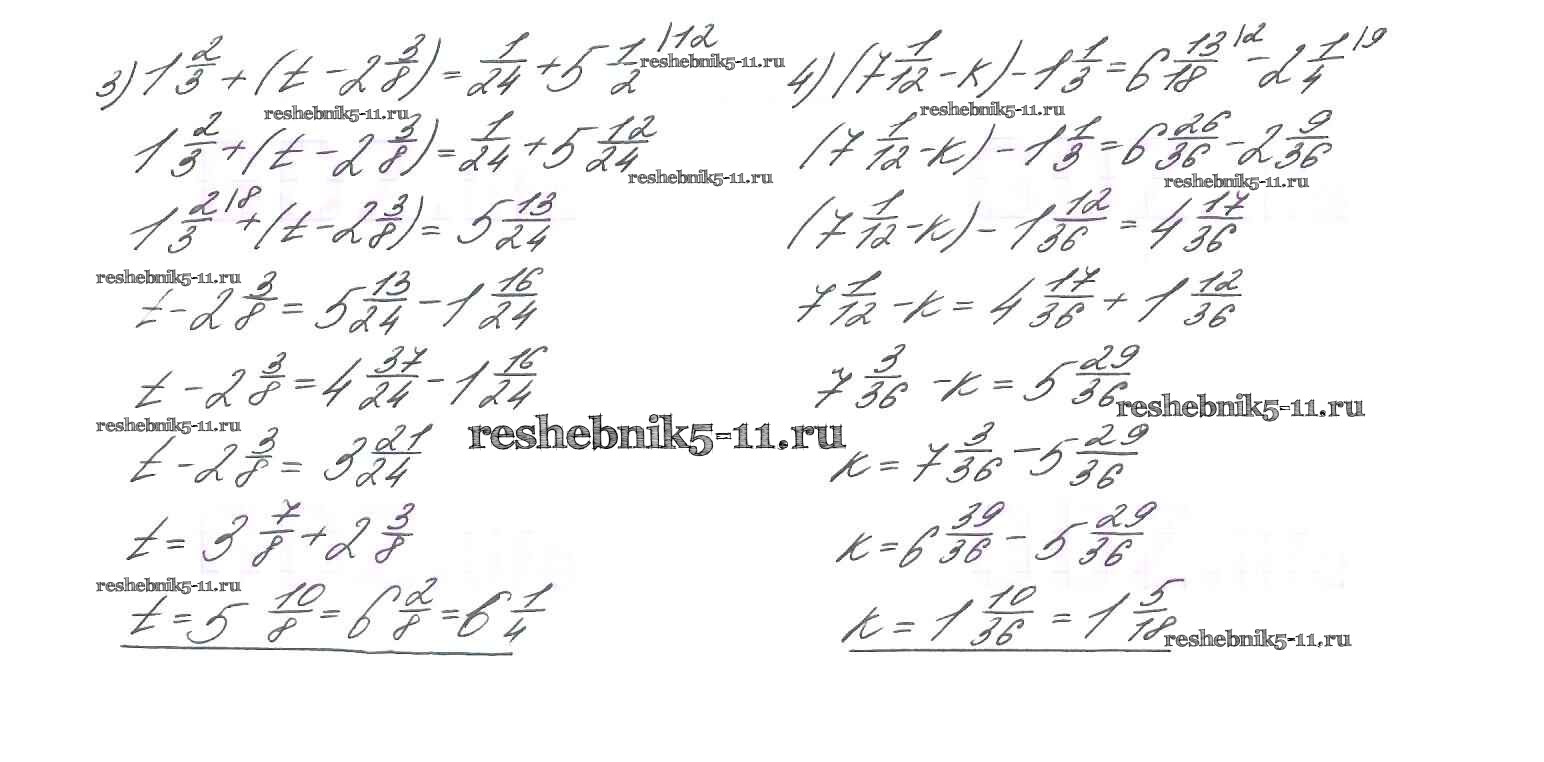 3) 1 2/3 + (t - 2 3/8) = 1/24 + 5 1/2 |12
reshebnik5-11.ru
reshebnik5-11.ru
1 2/3 + (t - 2 3/8) = 1/24 + 5 12/24
reshebnik5-11.ru
1 2/3 |8 + (t - 2 3/8) = 5 13/24
reshebnik5-11.ru
t - 2 3/8 = 5 13/24 - 1 16/24
t - 2 3/8 = 4 37/24 - 1 16/24
reshebnik5-11.ru
reshebnik5-11.ru
t - 2 3/8 = 3 21/24
t = 3 7/8 + 2 3/8
reshebnik5-11.ru
t = 5 10/8 = 6 2/8 = 6 1/4
4) (7 1/12 - k) - 1 1/3 = 6 13/18 |2 - 2 1/4 |9
reshebnik5-11.ru
(7 1/12 - k) - 1 1/3 = 6 26/36 - 2 9/36
reshebnik5-11.ru
(7 1/12 - k) - 1 12/36 = 4 17/36
7 1/12 - k = 4 17/36 + 1 12/36
7 3/36 - k = 5 29/36
reshebnik5-11.ru
k = 7 3/36 - 5 29/36
k = 6 39/36 - 5 29/36
k = 1 10/36 = 1 5/18
reshebnik5-11.ru